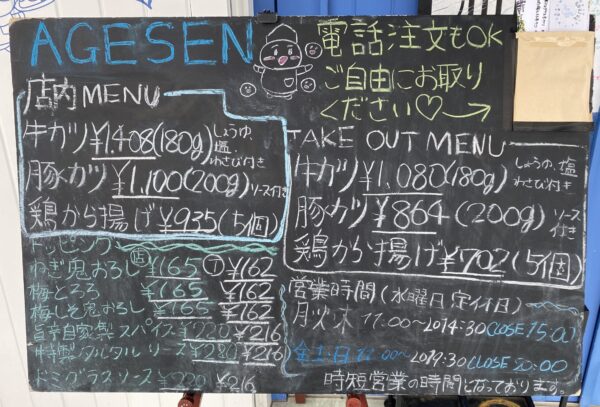 AGESEN
電話注文もOK
ご自由にお取り
ください♡→
店内MENU
牛カツ ¥1,408(180g) しょうゆ、塩、わさび付き
豚カツ ¥1,100(200g) ソース付き
鶏から揚げ ¥935(5個)
TAKE OUT MENU
牛カツ ¥1,080(180g) しょうゆ、塩 わさび付き
豚カツ ¥864(200g) ソース付き
鶏から揚げ ¥702(5個)
トッピング
ねぎ鬼おろし 店 ¥165 T ¥162
梅とろろ ¥165 ¥162
梅しそ鬼おろし ¥165 ¥162
旨辛自家製スパイス ¥220 ¥216
特製タルタルソース ¥220 ¥216
デミグラスソース ¥220 ¥216
営業時間(水曜日定休日)
月火木 11:00〜 14:30 CLOSE 15:00
金土日 11:00〜 19:30 CLOSE 20:00
時短営業の時間となっております。